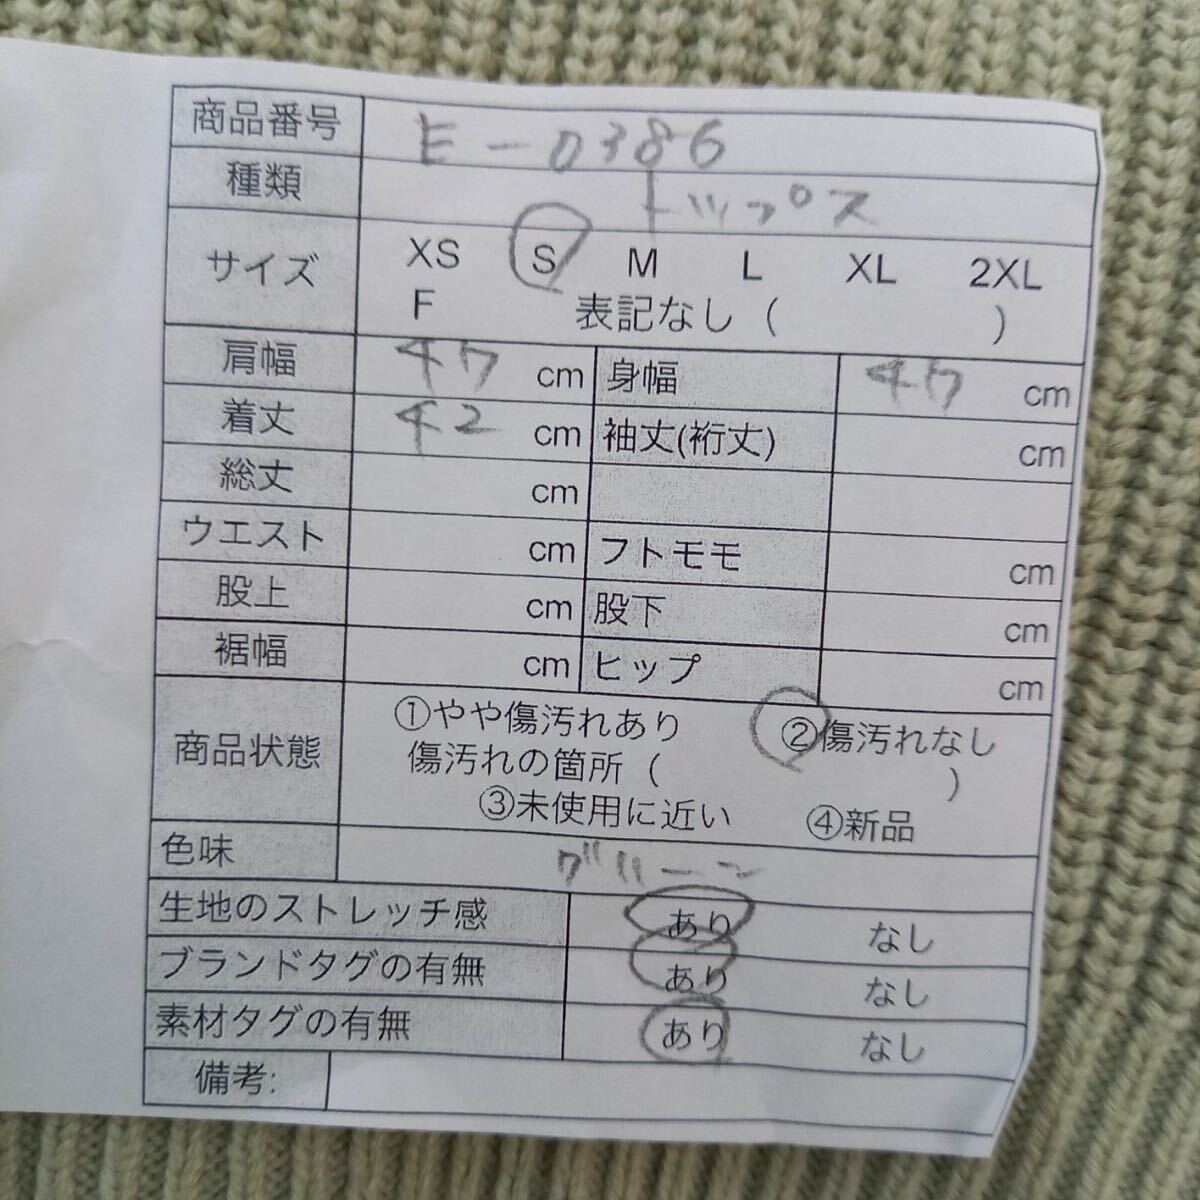 商品番号 E-0386
種類 トップス
サイズ XS S M L XL 2XL
F 表記なし ( )
肩幅 47 cm 身幅 47 cm
着丈 42 cm 袖丈(裄丈) cm
総丈 cm
ウエスト cm フトモモ cm
股上 cm 股下 cm
裾幅 cm ヒップ cm
商品状態 ①やや傷汚れあり ②傷汚れなし
傷汚れの箇所 ( )
③未使用に近い ④新品
色味 グリーン
生地のストレッチ感 あり なし
ブランドタグの有無 あり なし
素材タグの有無 あり なし
備考: